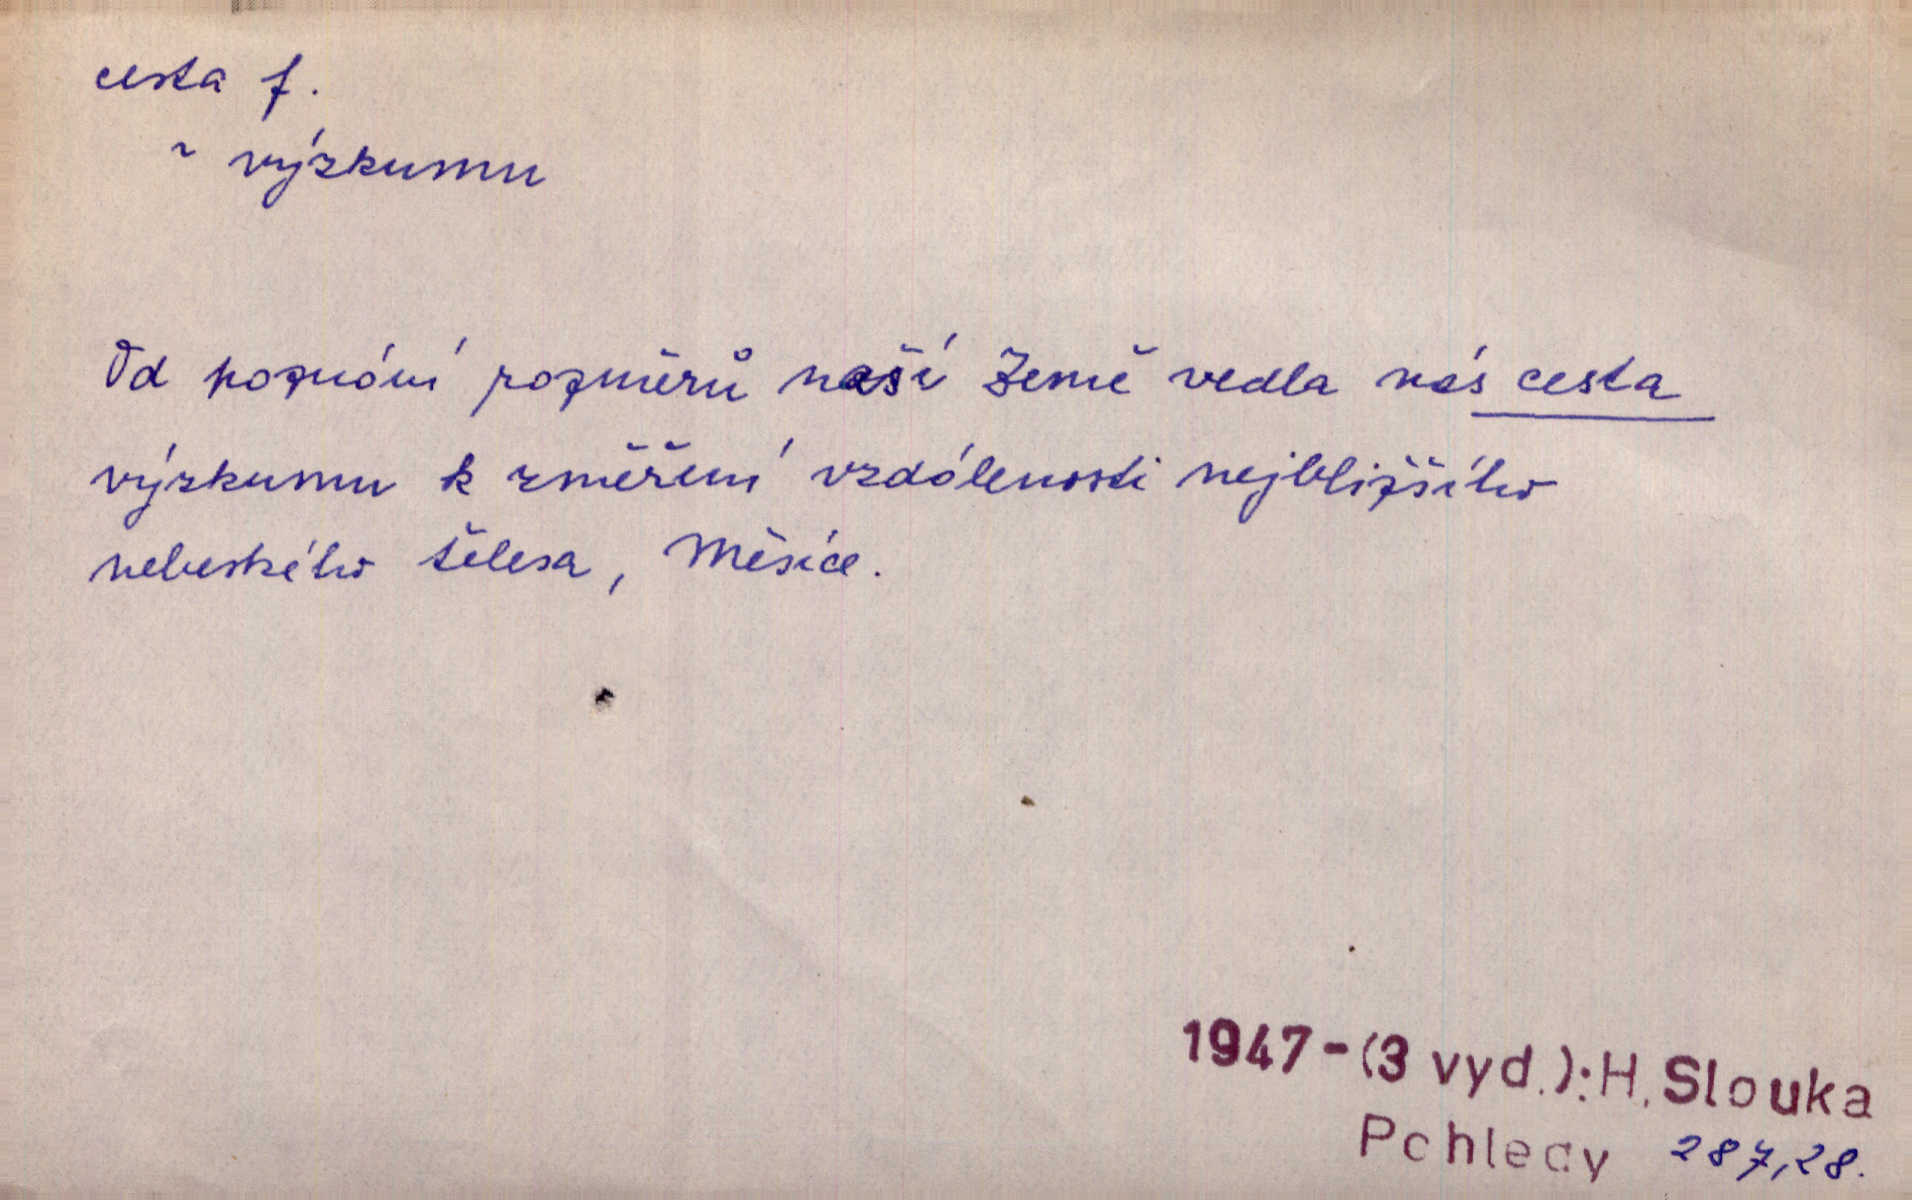 cesta f.
~ výzkumu
Od poznání rozměrů naší Země vedla nás cesta
výzkumu k změření vzdálenosti nejbližšího
nebeského tělesa, Měsíce.
1947-(3 vyd.): H. Slouka
Pohledy 287,28.